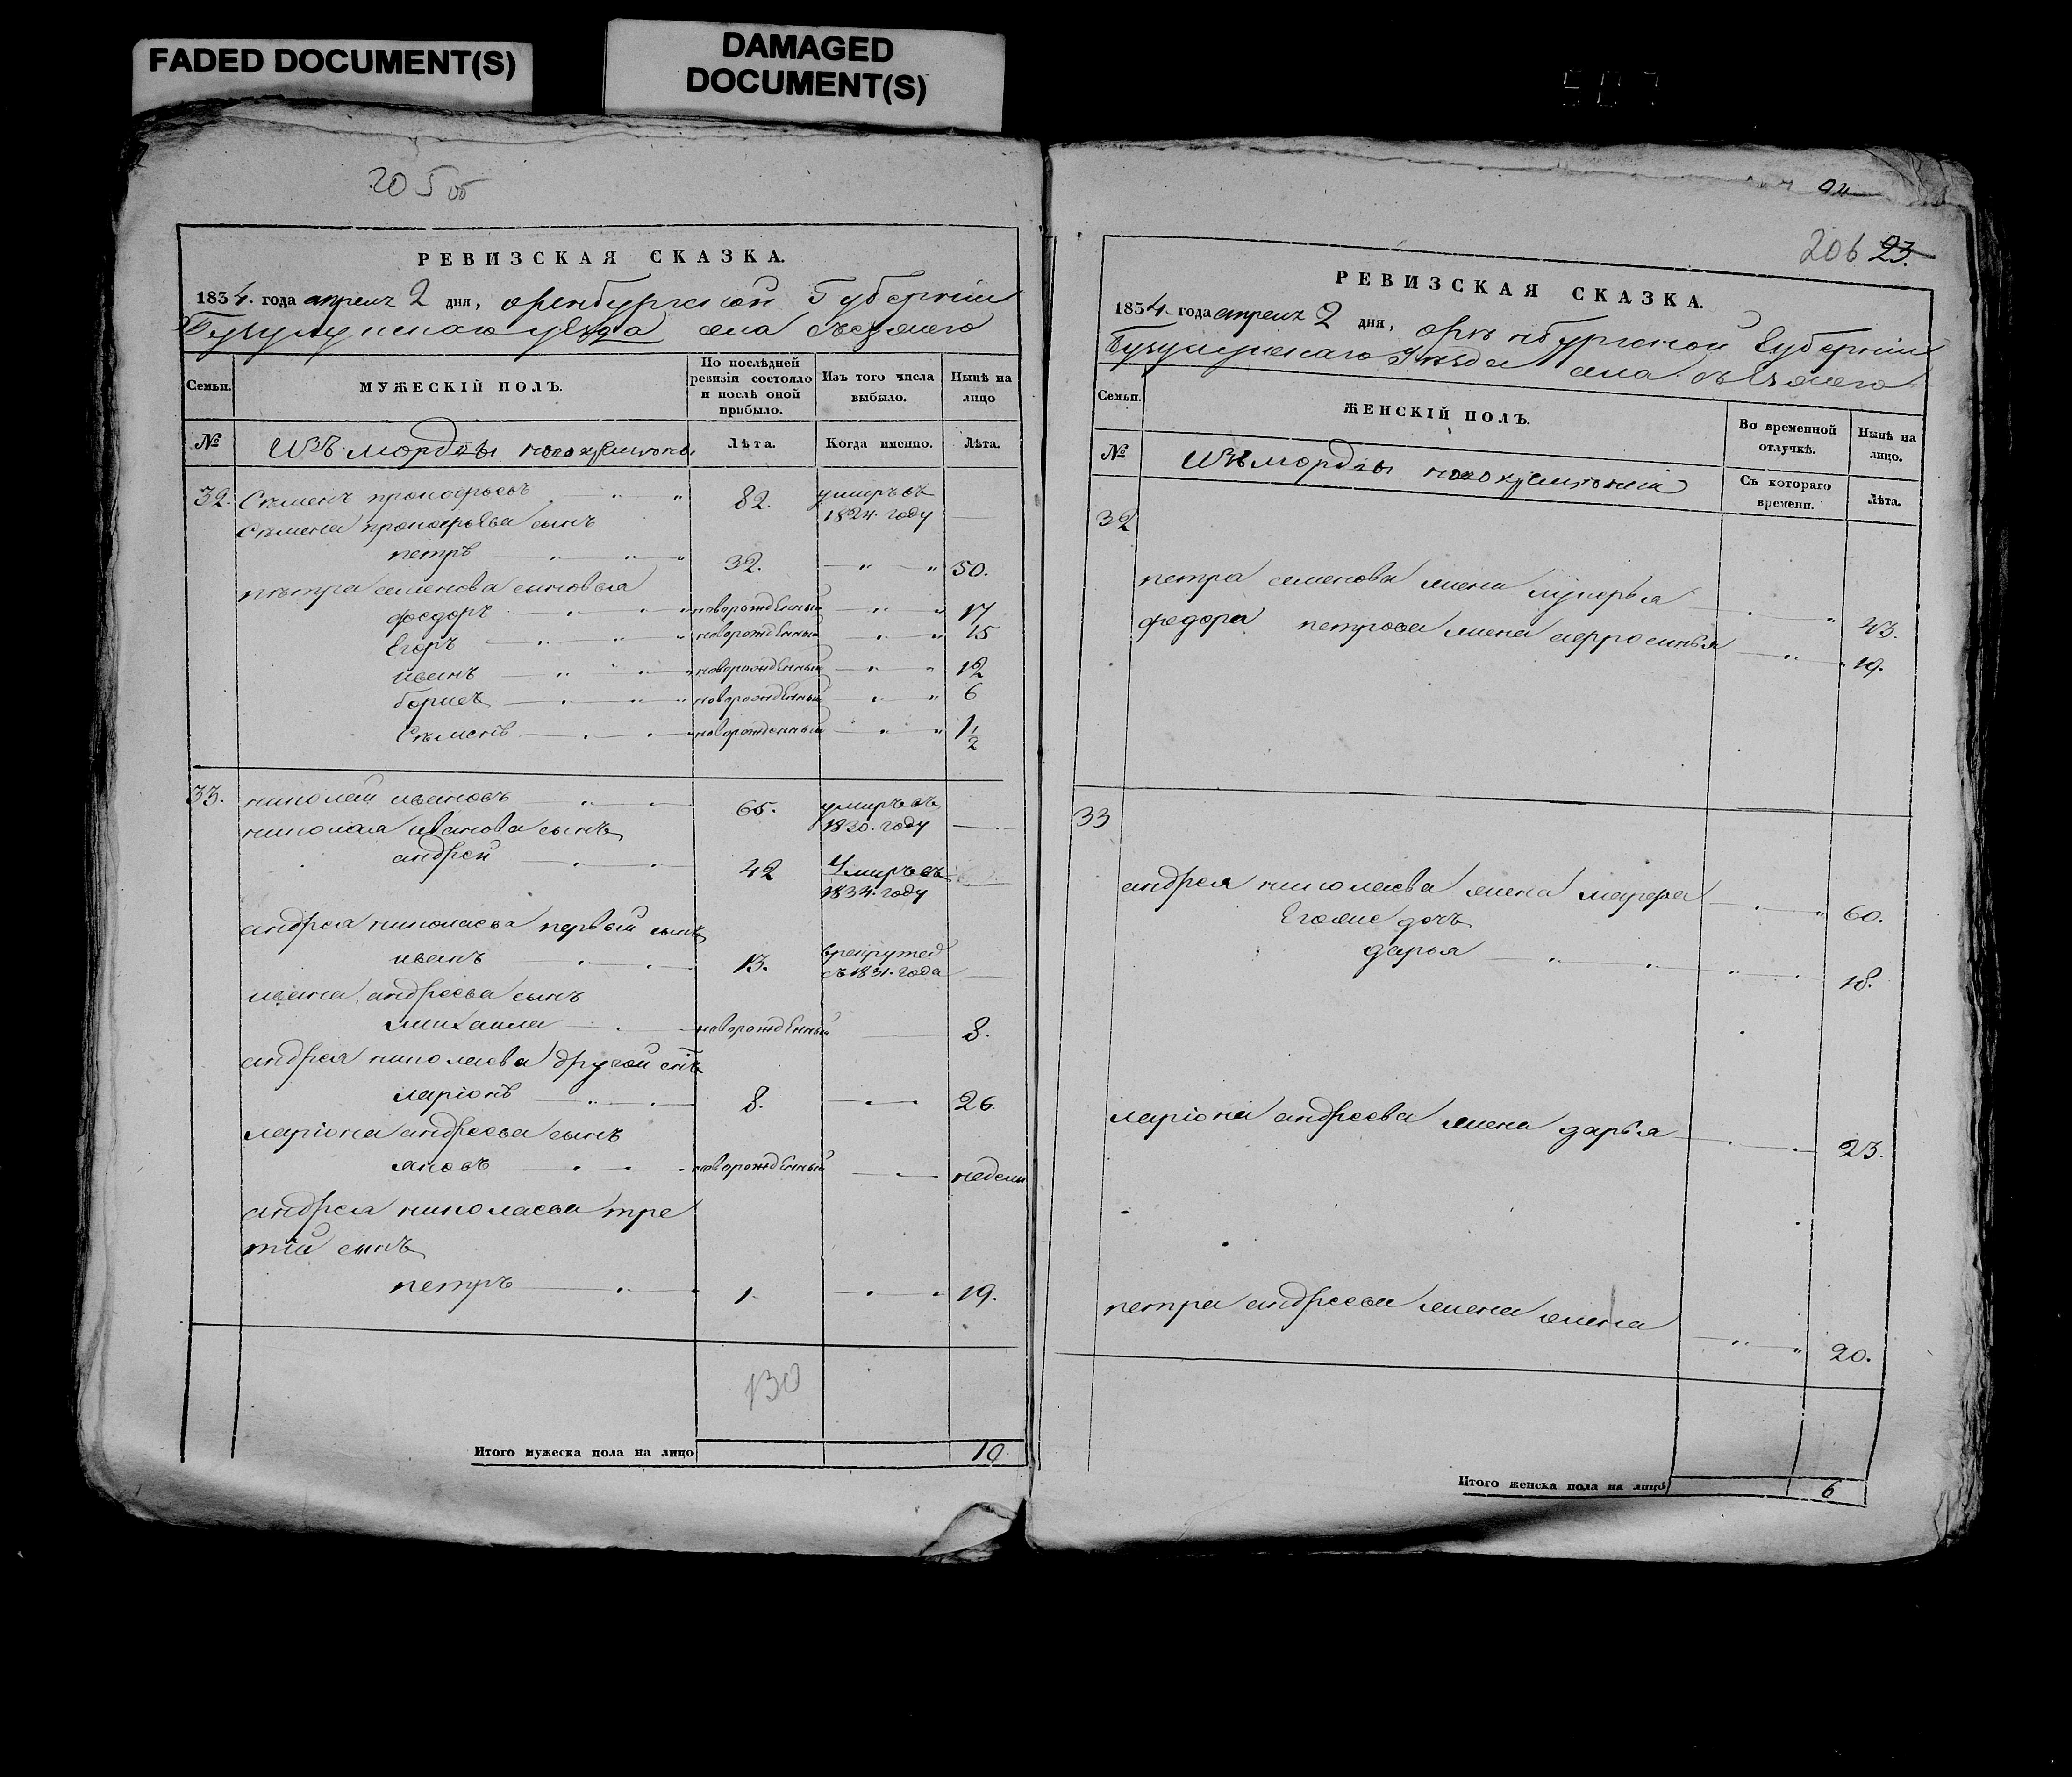 FADED DOCUMENT(S)
DAMAGED
DOCUMENT(S)
205 об
РЕВИЗСКАЯ СКАЗКА.
1834. года апреля 2 дня, оренбургской Губернии
уезда села
Семьи.
МУЖЕСКІЙ ПОЛЪ.
По послѣдней ревизіи состояло и послѣ оной прибыло.
Изъ того числа выбыло.
Нынѣ на лицо
№
Изъ мордвы
Лѣта.
Когда именно.
Лѣта.
32. Семенъ прокофьевъ 82. умиръ въ 1824. году
Семена прокофьева сынъ
петръ 32. 50.
петра семенова сыновья
федоръ новорожденный 17
Егоръ новорожденный 15
иванъ новорожденный 12
борисъ новорожденный 6
Семенъ новорожденный 1 1/2
33. николай ивановъ 65. умиръ въ 1830. году
николая иванова сынъ
андрей 42 Умиръ въ 1834. году
андрея николаева первый сынъ
иванъ 13. в рекруте съ 1831. года
ивана андреева сынъ
михаила новорожденный 8.
андрея николаева другой снъ
ларіонъ 8. 26.
ларіона андреева сынъ
яковъ новорожденный недели
андрея николаева тре
тій сынъ
петръ 1. 19.
130
Итого мужеска пола на лицо 10
206 23.
РЕВИЗСКАЯ СКАЗКА.
1834 года апреля 2 дня, Губернии
села
Семьи.
ЖЕНСКІЙ ПОЛЪ.
Во временной отлучкѣ.
Нынѣ на лицо.
№
Изъ мордвы
Съ котораго времени.
Лѣта.
32
петра семенова жена лукерья 43.
федора петрова жена афросинья 19.
33
андрея николаева жена марфа 60.
Егояже дочь
дарья 18.
ларіона андреева жена дарья 23.
петра андреева жена 20.
Итого женска пола на лицо 6